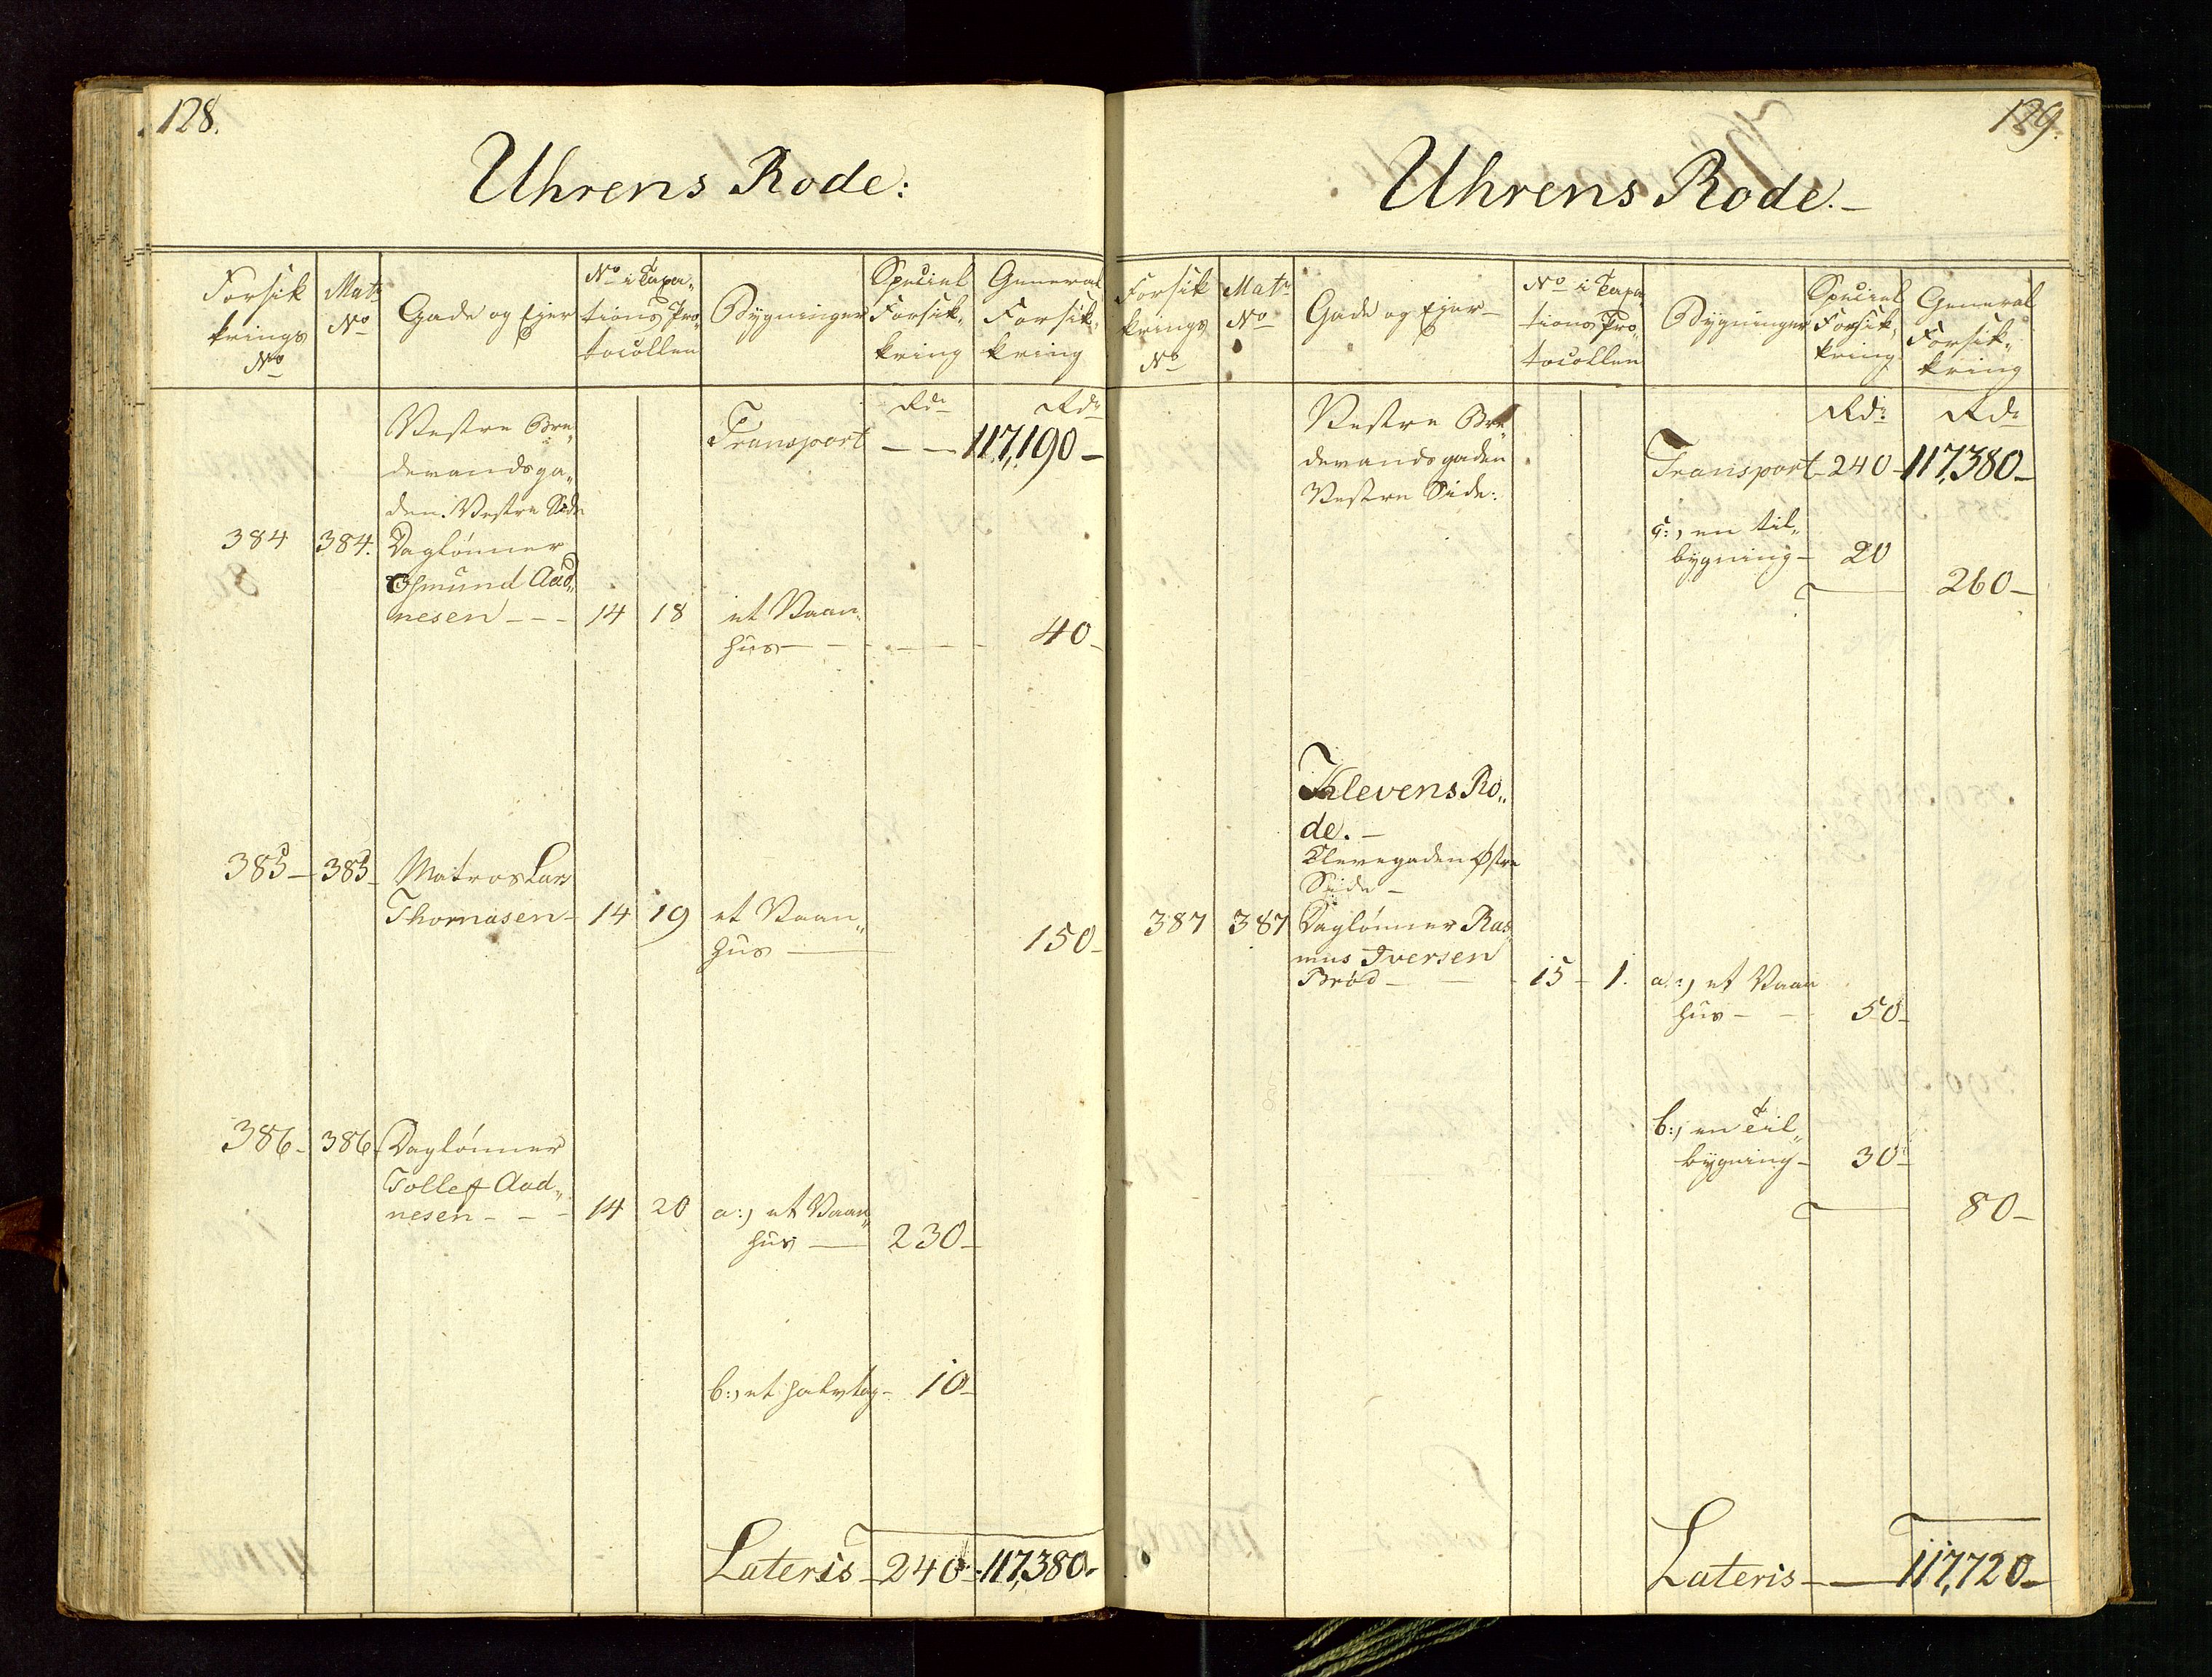 128.
Uhrens Rode:
Forsik
krings
No
Matr
No
Gade og Ejer
No i Taxa„
tions Pro„
tocollen
Bygninger
Speciel
Forsik„
kring
General
Forsik„
kring
Vestre Bre„
devandsga„
den. Vestre Side
Transport
Rdr
Rdr
— — 117,190 —
384 384. Daglønner
Osmund Aad„
nesen - - - 14 18 et Vaan„
hus — — — — 40 -
385 — 385 - Matros Lars
Thomasen - 14 19 et Vaan„
hus — 150 -
386 - 386 - Daglønner
Tollef Aad„
nesen - - - 14 20 a:, et Vaan„
hus — 230 -
b:, et halvtag - 10 -
Lateris - 240 - 117,380 -
129.
Uhrens Rode. -
Forsik
krings
No
Matr
No
Gade og Ejer
No i Taxa„
tions Pro„
tocollen
Bygninger
Speciel
Forsik„
kring
General
Forsik„
kring
Vestre Bre„
devandsgaden
Vestre Side:
Rdr
Rdr
Transport - 240 - 117,380 -
c:, en til„
bygning - 20
260 -
Klevens Ro„
de. -
Klevegaden Østre
Side -
387 387 Daglønner Ras„
mus Iversen
Brød - - 15 - 1. a:, et Vaan
hus - - 50 -
b:, en Til„
bygning - 30 -
80 -
Lateris - — 117,720 -